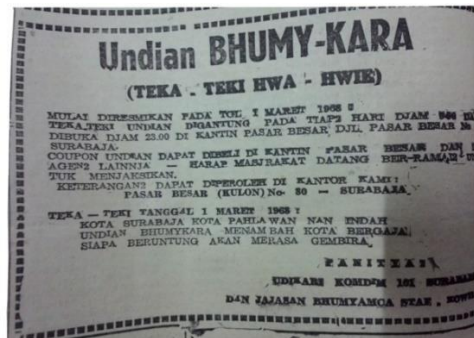 Undian BHUMY-KARA
(TEKA - TEKI HWA - HWIE)
MULAI DIRESMIKAN PADA TGL 1 MARET 1968 :
TEKA TEKI UNDIAN DIGANTUNG PADA TIAP2 HARI DJAM
DIBUKA DJAM 23.00 DI KANTIN PASAR BESAR DJL. PASAR BESAR
SURABAJA.
COUPON UNDIAN DAPAT DIBELI DI KANTIN PASAR BESAR DAN
AGEN2 LAINNJA — HARAP MASJRAKAT DATANG BER-RAMAI
TUK MENJAKSIKAN.
KETERANGAN2 DAPAT DIPEROLEH DI KANTOR KAMI :
PASAR BESAR (KULON) No. 30 — SURABAJA
TEKA — TEKI TANGGAL 1 MARET 1968 :
KOTA SURABAJA KOTA PAHLAWAN NAN INDAH
UNDIAN BHUMYKARA MENAMBAH KOTA BERGAJA
SIAPA BERUNTUNG AKAN MERASA GEMBIRA.
PANITIA:
KOMDIM
DAN JAJASAN BHUMYAMCA